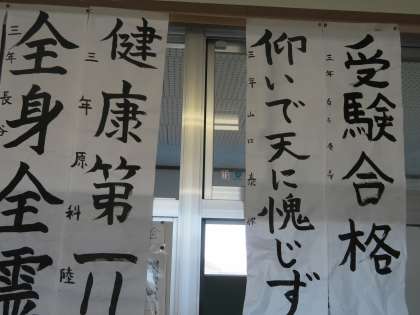 受験合格
三年
仰いで天に愧じず
三年山口泰
健康第一!!
三年原科陸
全身全霊
三年長谷